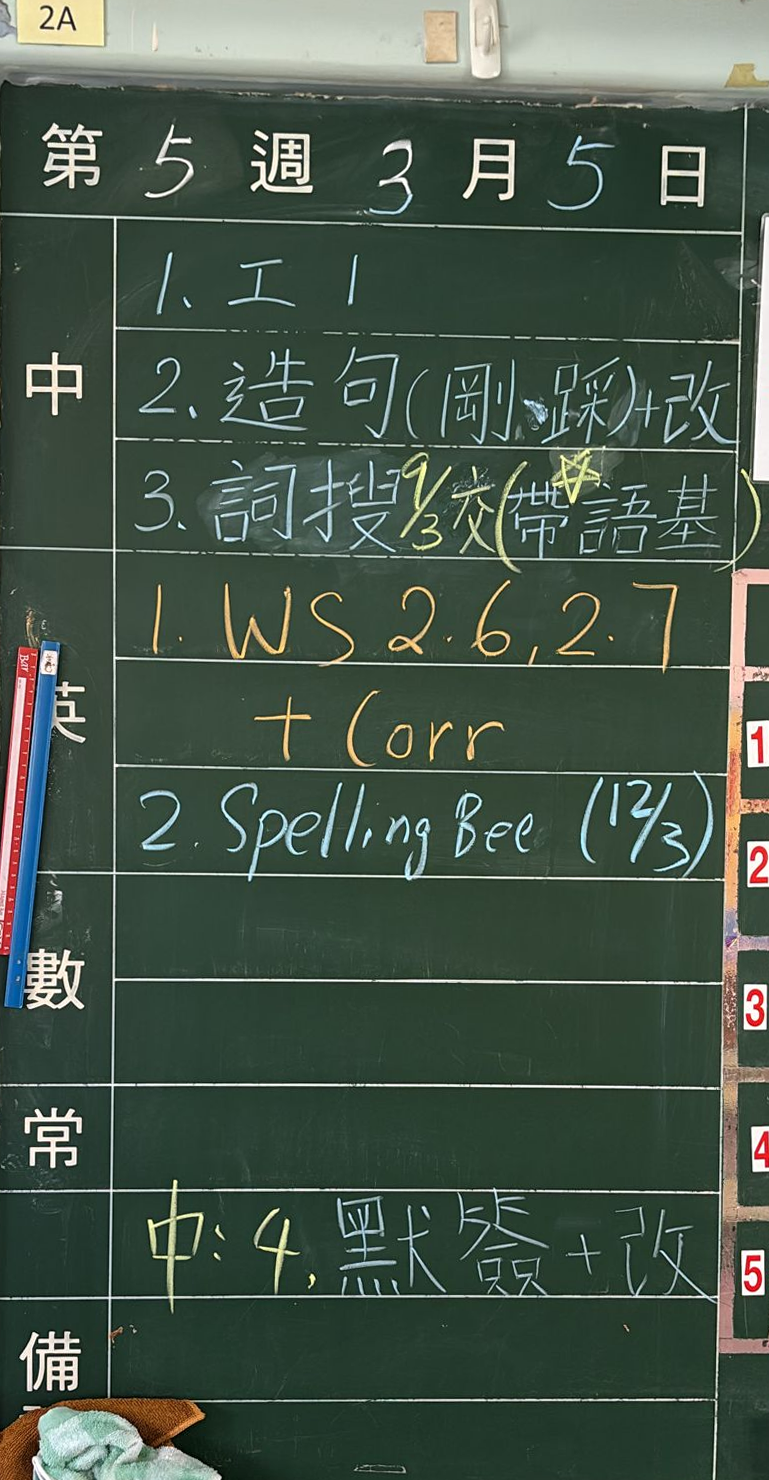 2A
第 5 週 3 月 5 日
中
1、工 1
2、造句(剛、踩)+改
3、詞搜 9/3交(帶語基)
英
1. WS 2.6, 2.7
+ Corr
2. Spelling Bee (12/3)
數
常
中: 4、默簽+改
備
1
2
3
4
5